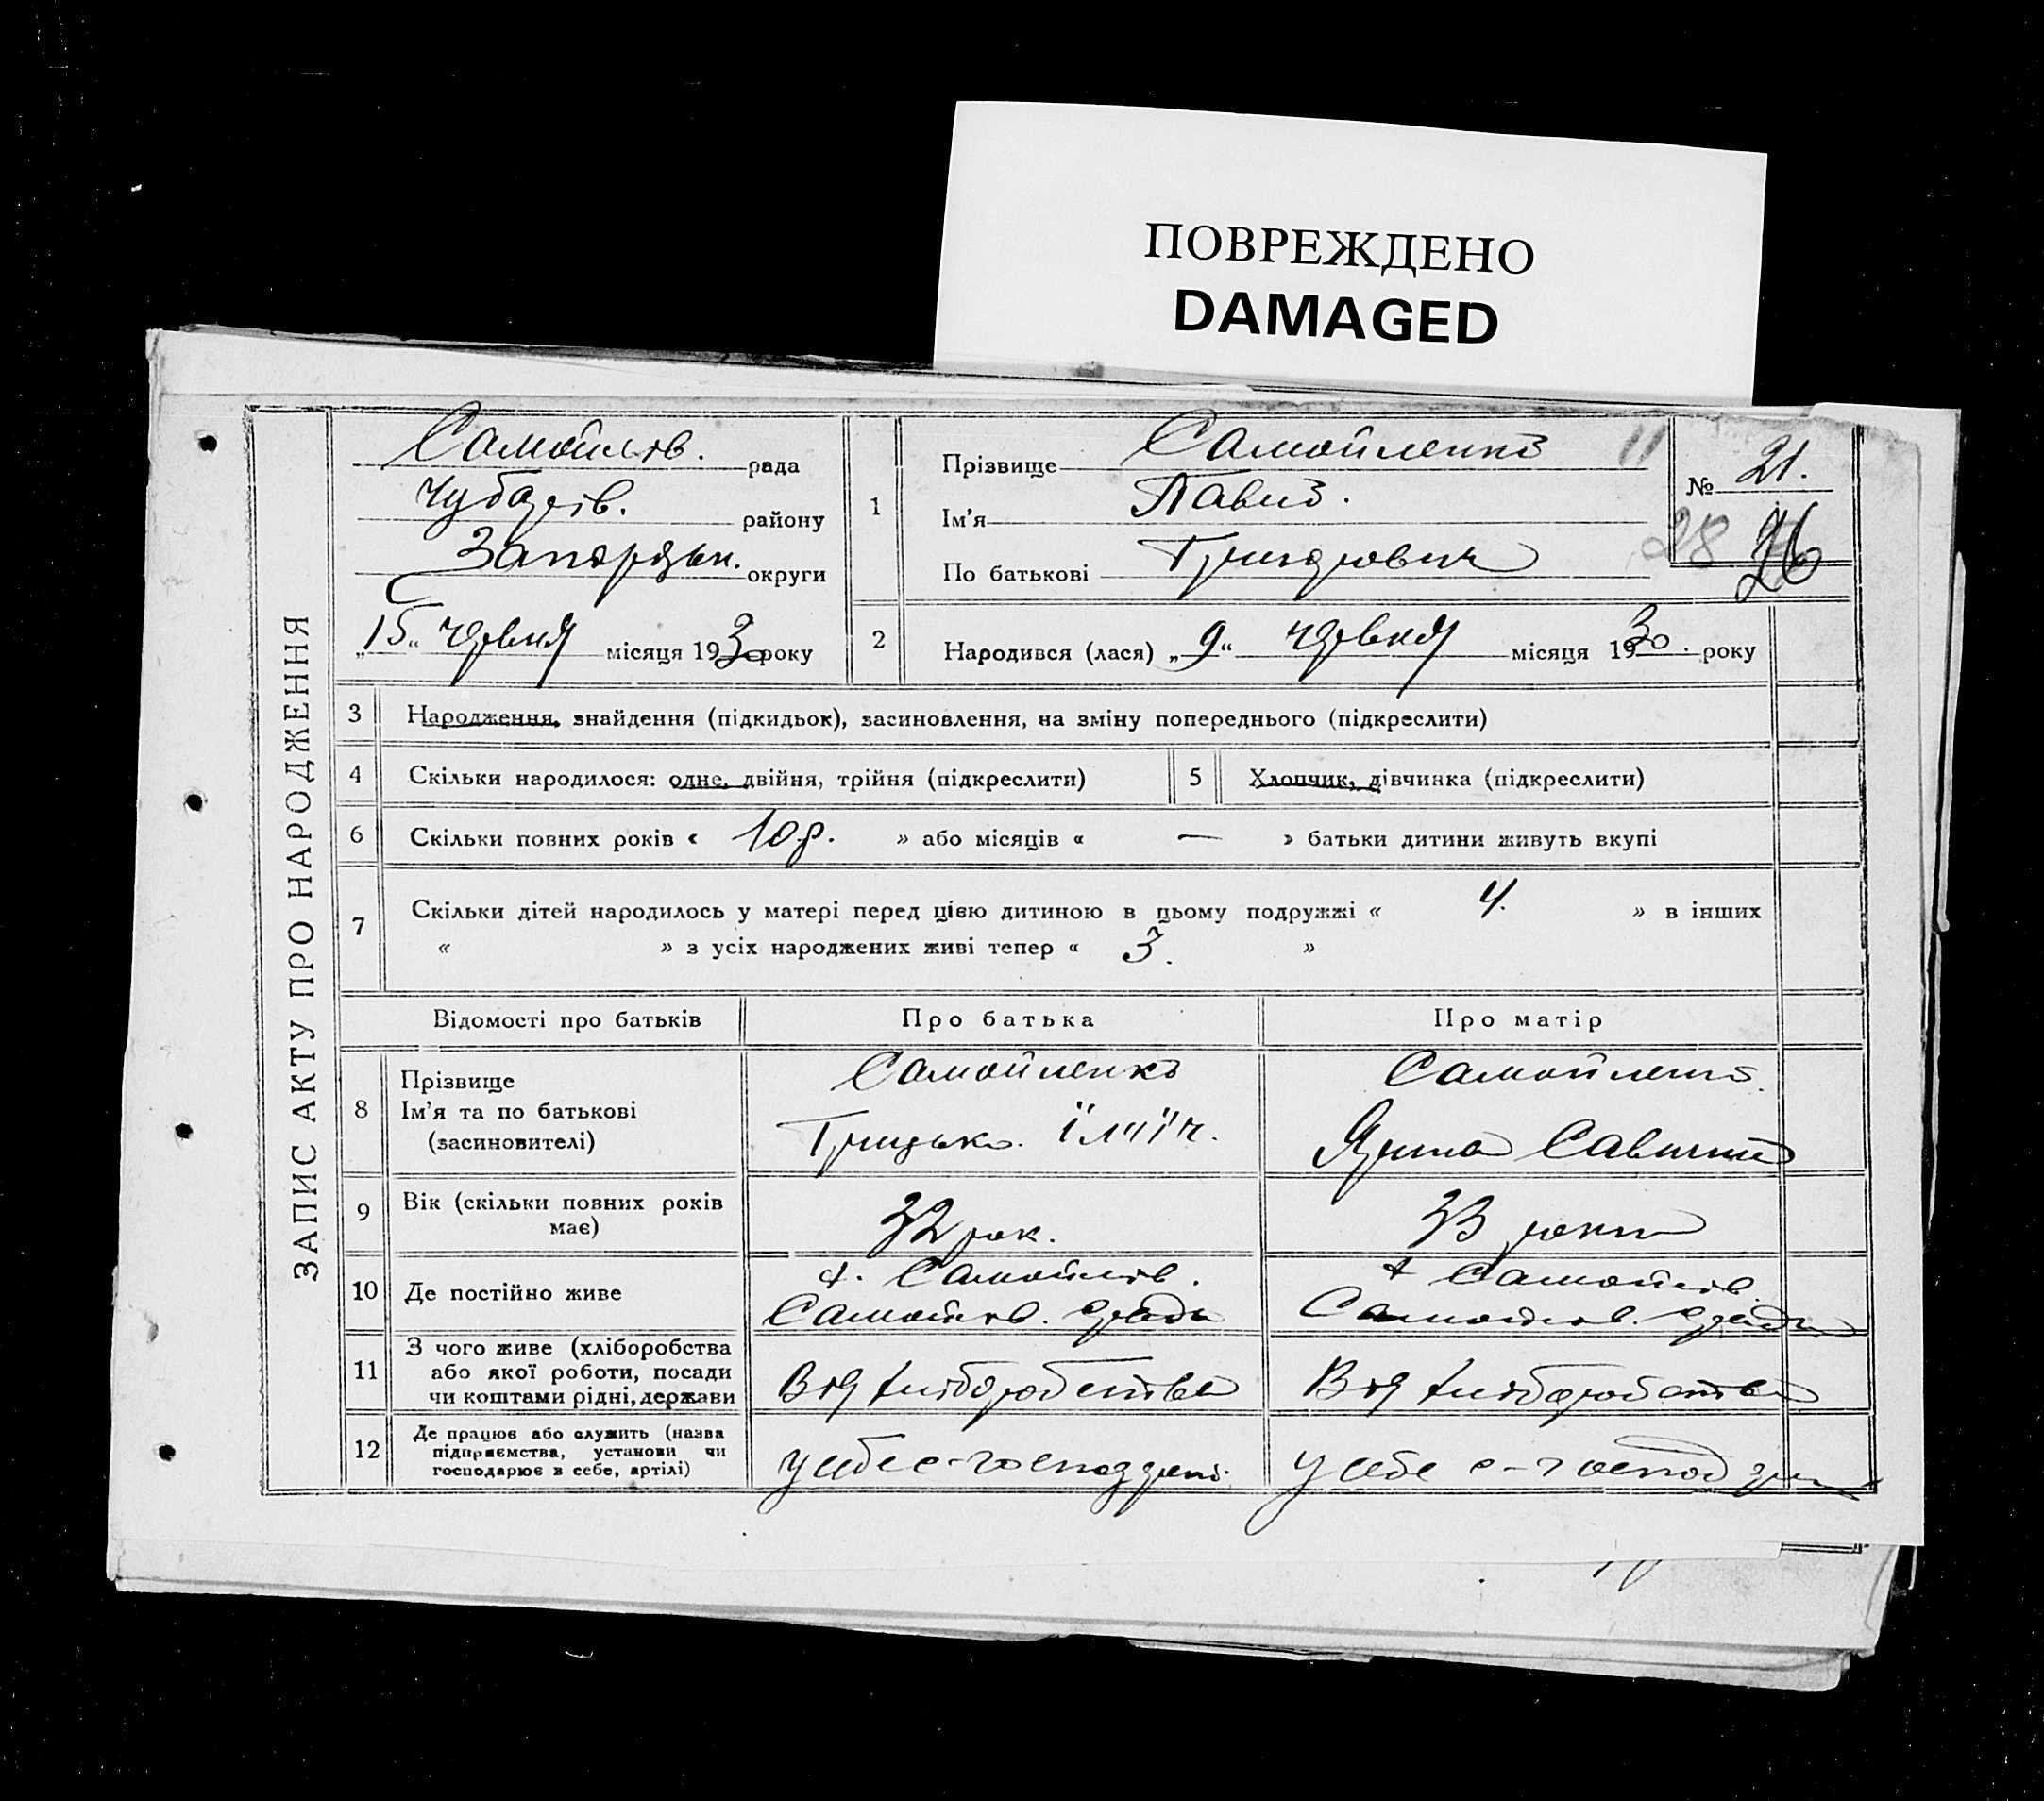 ПОВРЕЖДЕНО
DAMAGED
ЗАПИС АКТУ ПРО НАРОДЖЕННЯ
Самойлів. рада
Чубарів. району
Запорізьк. округи
„15“ червня місяця 1930 року
1
Прізвище Самойленко 11
Ім'я Павло.
По батькові Григорович
№ 21.
28 26
2 Народився (лася) „9“ червня місяця 1930. року
3 Народження, знайдення (підкидьок), засиновлення, на зміну попереднього (підкреслити)
4 Скільки народилося: одне, двійня, трійня (підкреслити) 5 Хлопчик, дівчинка (підкреслити)
6 Скільки повних років « 10 р. » або місяців « — » батьки дитини живуть вкупі
7 Скільки дітей народилось у матері перед цією дитиною в цьому подружжі « 4. » в інших
« » з усіх народжених живі тепер « 3. »
Відомості про батьків Про батька Про матір
8 Прізвище
Ім'я та по батькові
(засиновителі)
Самойленко
Грицько. Ілліїч.
Самойленко.
Ярина Савична
9 Вік (скільки повних років
має)
32 рок.
33 роки
10 Де постійно живе
х. Самойлів.
Самойлів. с/ради
х Самойлів.
Самойлов. с/ради
11 З чого живе (хліборобства
або якої роботи, посади
чи коштами рідні, держави
Від хліборобства
Від хліборобства
12 Де працює або служить (назва
підприємства, установи чи
господарює в себе, артілі)
у себе
у себе